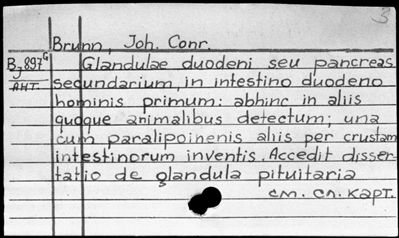 3
Brunn, Joh. Conr.
B 897 G Glandulae duodeni seu pancreas
J
АНТ. secundarium, in intestino duodeno
hominis primum: abhinc in aliis
quoque animalibus detectum; una
cum paralipoinenis aliis per crustam
intestinorum inventis. Accedit disser-
tatio de glandula pituitaria
см. сл. карт.